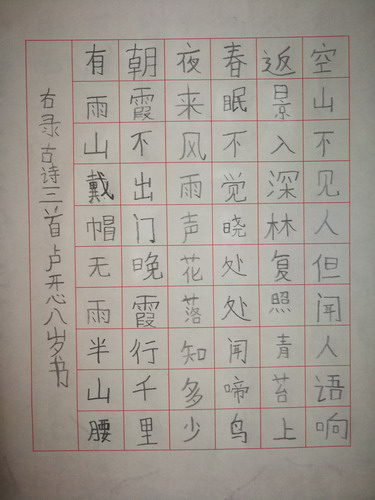 空山不见人但闻人语响
返景入深林复照青苔上
春眠不觉晓处处闻啼鸟
夜来风雨声花落知多少
朝霞不出门晚霞行千里
有雨山戴帽无雨半山腰
右录古诗三首卢开心八岁书